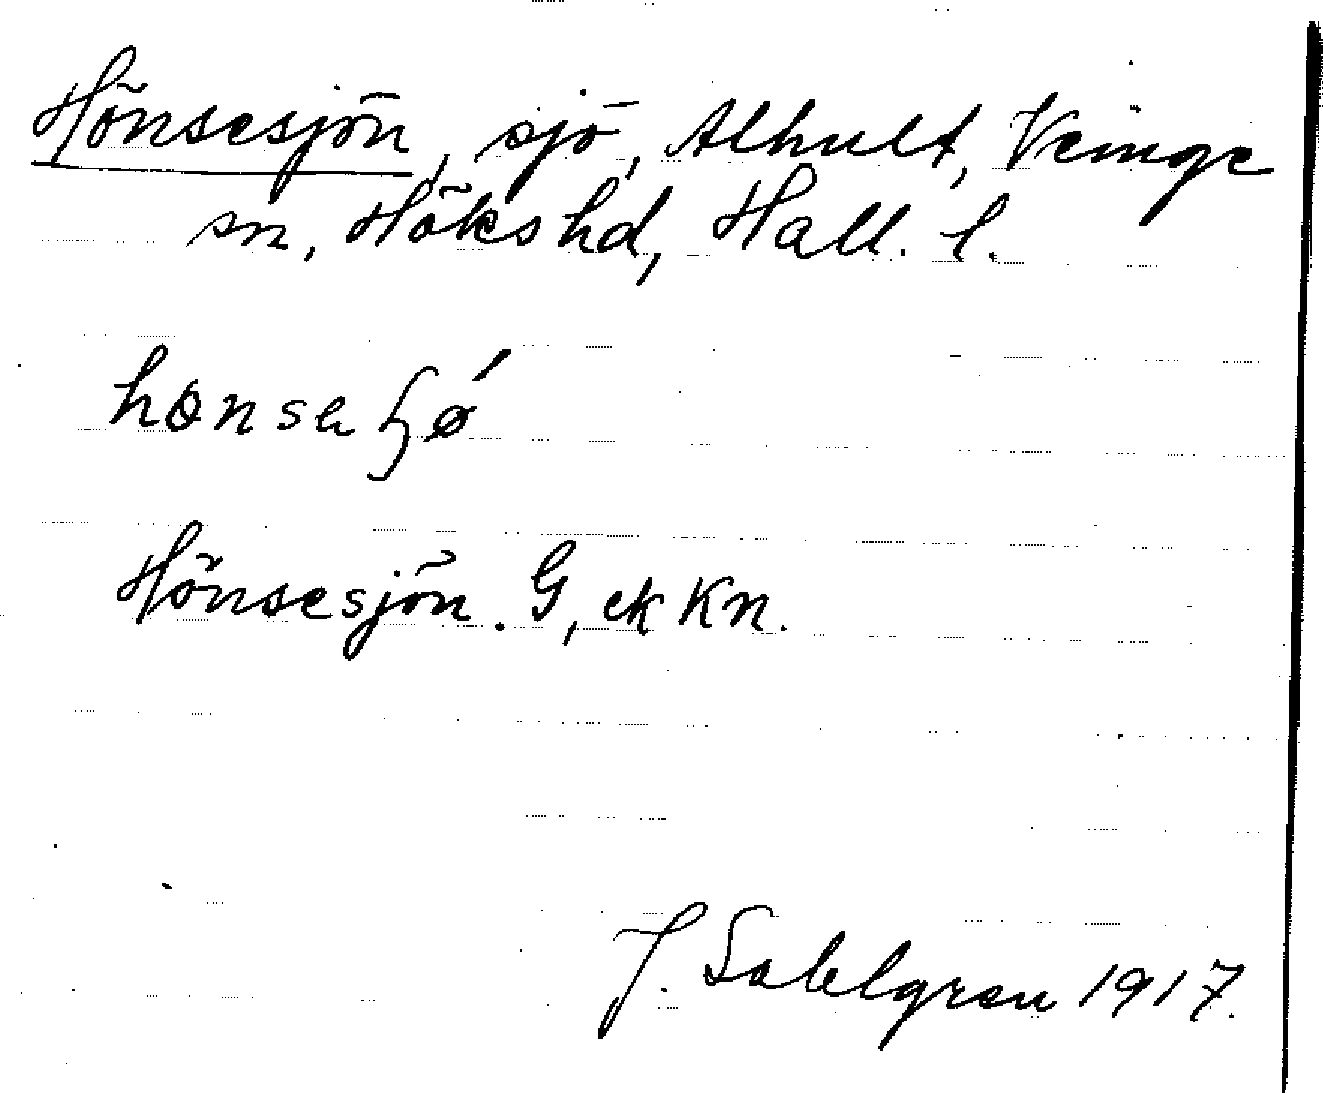 Hönsesjön, sjö, Alhult, Veinge
sn, Höks hd, Hall. l.
hønsaɧǿ
Hönsesjön. G, ek Kn.
J. Sahlgren 1917.